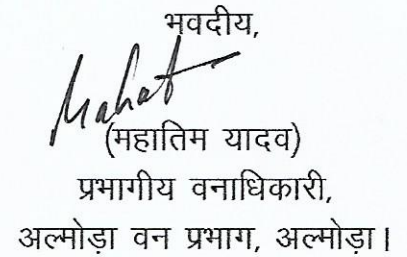 भवदीय,
Mahat
(महातिम यादव)
प्रभागीय वनाधिकारी,
अल्मोड़ा वन प्रभाग, अल्मोड़ा।